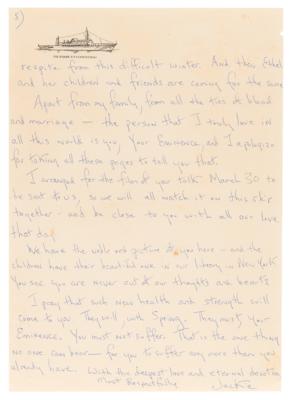 5)
respite from this difficult winter. And then Ethel
and her children and friends are coming for the same
Apart from my family, from all the ties of blood
and marriage – the person that I truly love in
all this world is you, Your Eminence, and I apologize
for taking all these pages to tell you that.
I arranged for the film of you talk March 30 to
be sent to us, so we will all watch it on this ship
together – and be close to you with all our love
that day.
We have the picture of you here – and the
children have their beautiful one in our library in New York
You see you are never out of our thoughts and hearts
I pray that such new health and strength will
come to you They will, with Spring. They must, Your
Eminence. You must not suffer. That is the one thing
no one can bear – for you to suffer any more than you
already have. With the deepest love and eternal devotion
Most Respectfully
Jackie